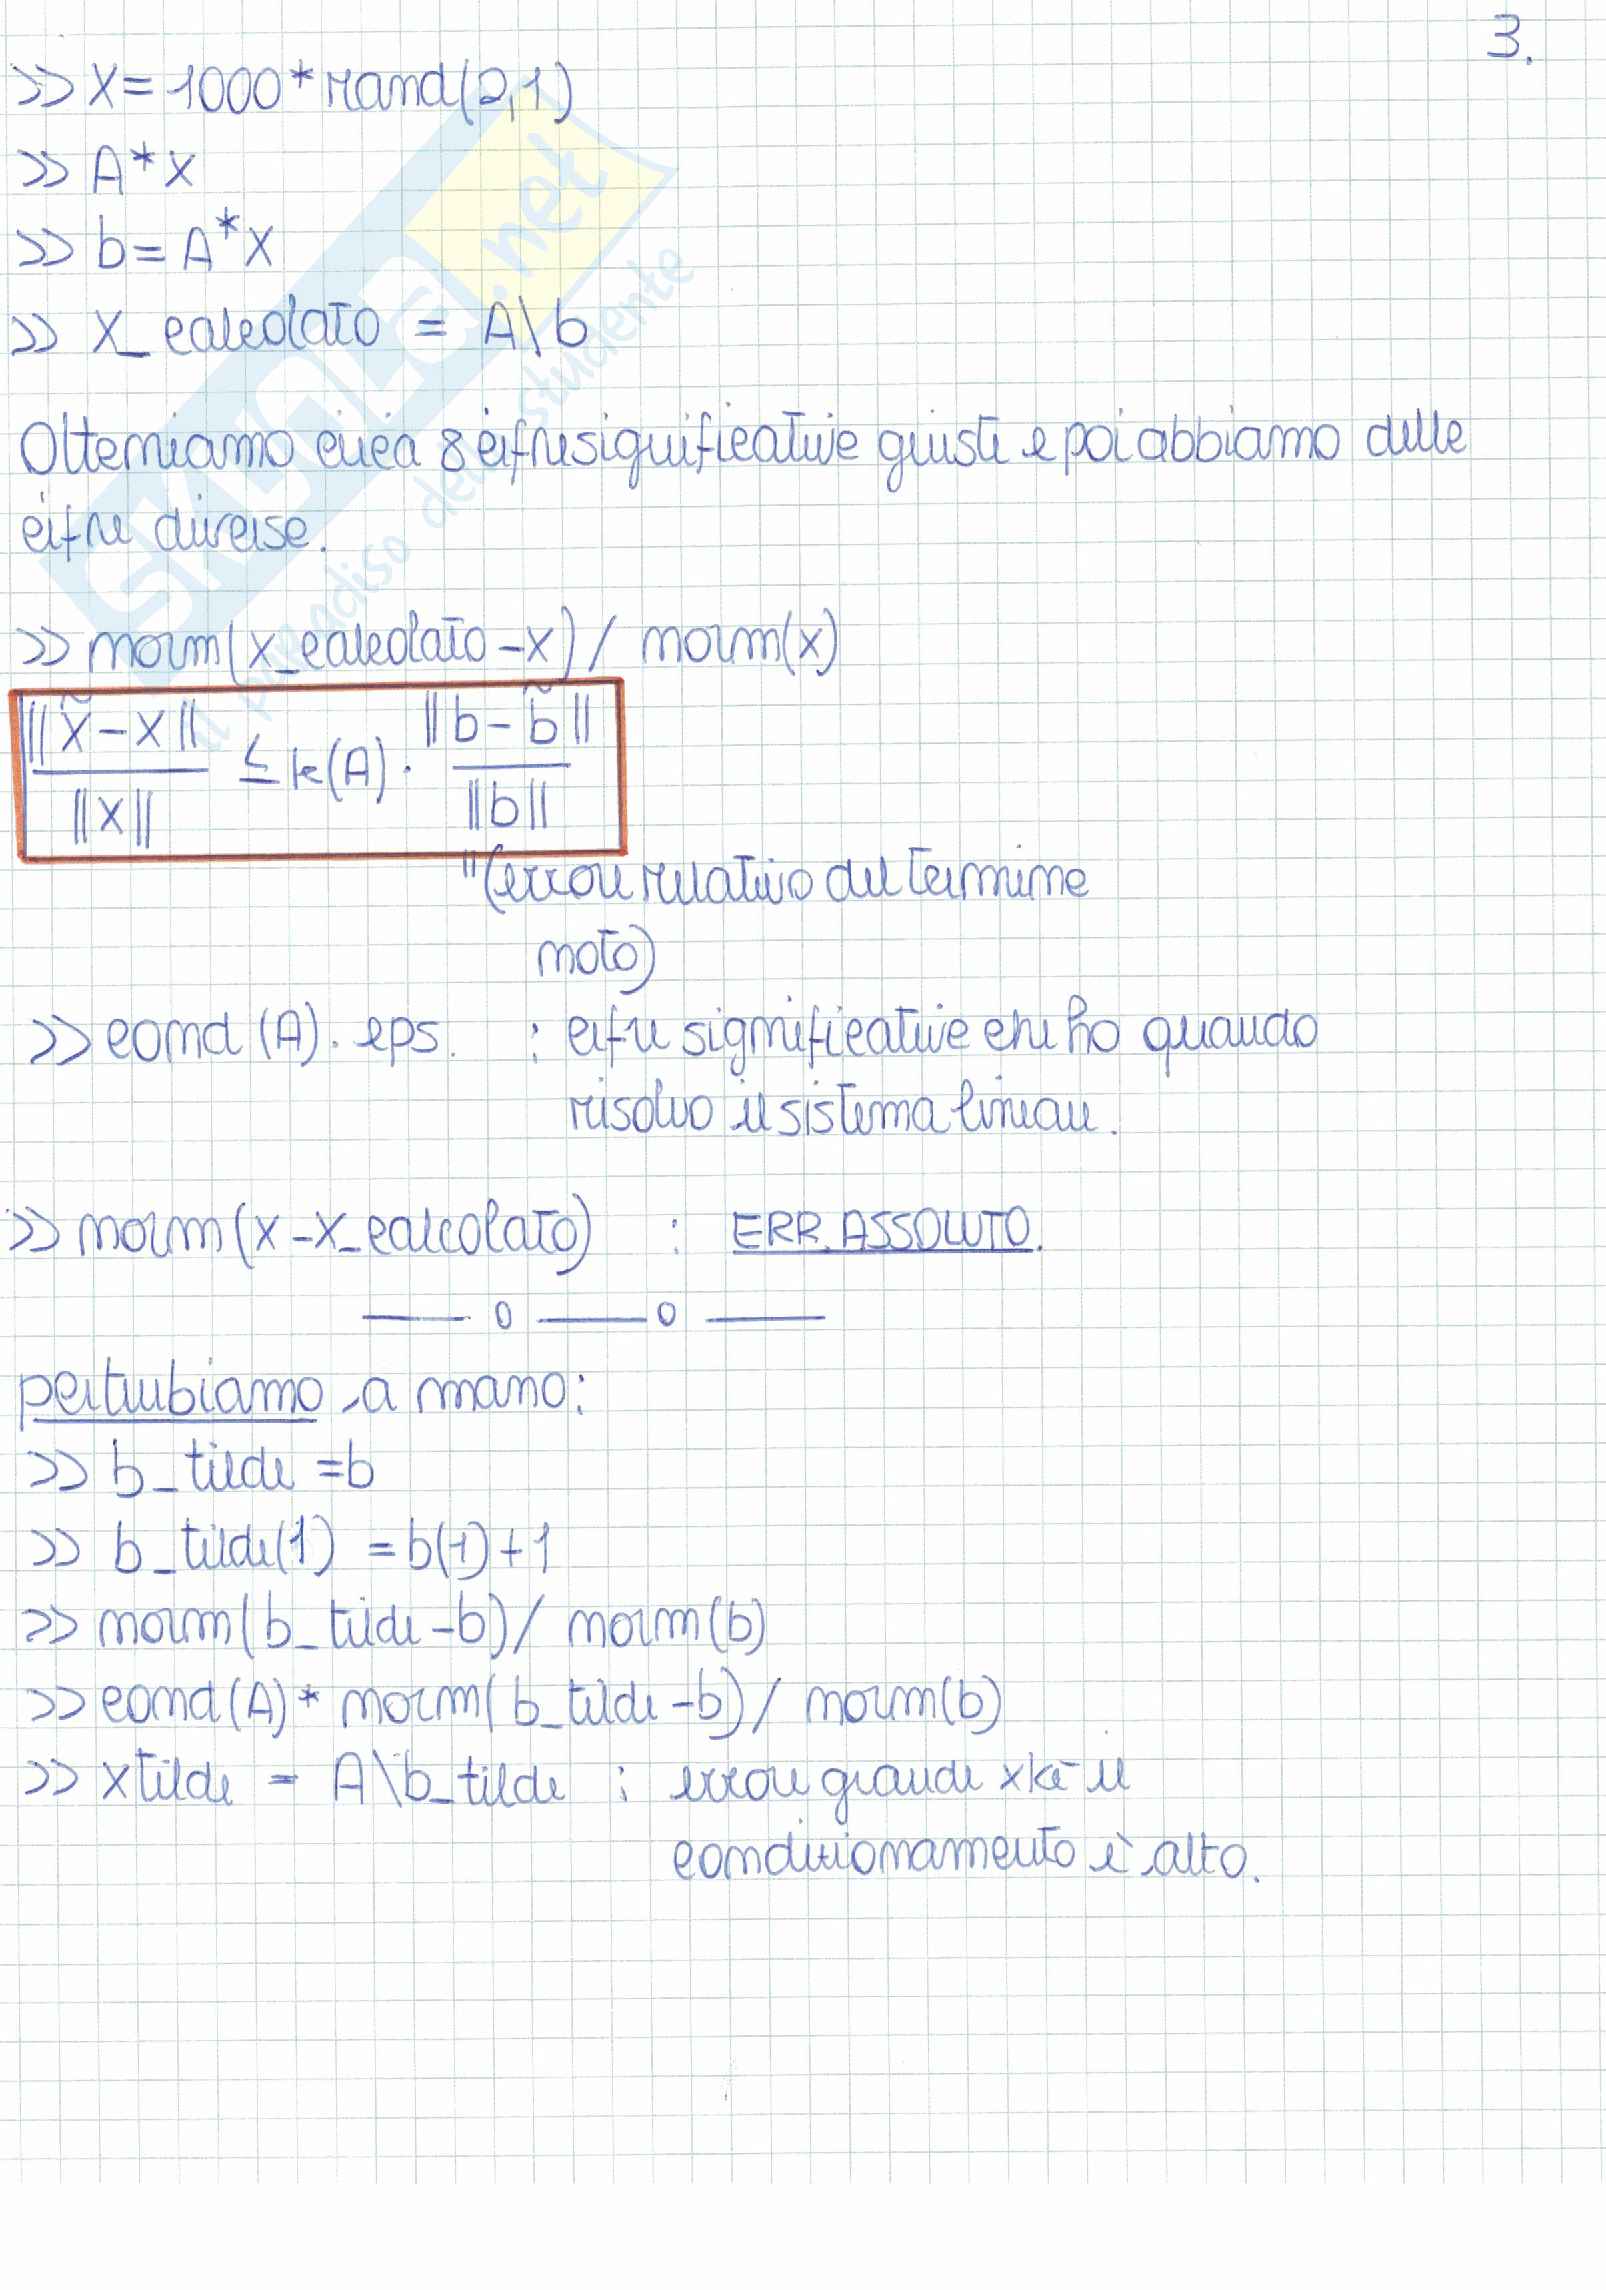 3.
>> X = 1000 * rand(2,1)
>> A*x
>> b = A*X
>> X_calcolato = A\b
Otteniamo circa 8 cifre significative giuste e poi abbiamo delle
cifre diverse.
>> norm(x_calcolato - x) / norm(x)
‖x̃ - x‖ / ‖x‖ ≤ k(A) · ‖b - b̃‖ / ‖b‖
"(errore relativo del termine
noto)
>> cond (A) · eps. : cifre significative che ho quando
risolvo il sistema lineare.
>> norm (x - x_calcolato) : ERR. ASSOLUTO.
— o — o —
perturbiamo a mano:
>> b_tilde = b
>> b_tilde(1) = b(1) + 1
>> norm(b_tilde - b) / norm(b)
>> cond(A) * norm(b_tilde - b) / norm(b)
>> xtilde = A\b_tilde : errore grande xkè il
condizionamento è alto.
SKUOLA.net
il paradiso dello studente